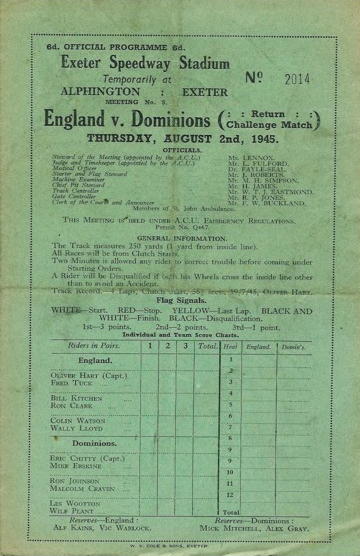 6d. OFFICIAL PROGRAMME 6d.
Exeter Speedway Stadium
Temporarily at
Nº 2014
ALPHINGTON : EXETER
MEETING No. 8.
England v. Dominions (: : Return : : Challenge Match)
THURSDAY, AUGUST 2nd, 1945.
OFFICIALS.
Steward of the Meeting (appointed by the A.C.U.) Mr. LENNOX.
Judge and Timekeeper (appointed by the A.C.U.) Mr. L. FULFORD.
Medical Officer Dr. FAYLE-SEAL.
Starter and Flag Steward Mr. J. ROBERTS.
Machine Examiner Mr. M. H. SIMPSON.
Chief Pit Steward Mr. H. JAMES.
Track Controller Mr. W. T. J. EASTMOND.
Gate Controller Mr. R. P. JONES.
Clerk of the Course and Announcer Mr. F. W. BUCKLAND.
Members of St. John Ambulance.
THIS MEETING IS HELD UNDER A.C.U. EMERGENCY REGULATIONS.
Permit No.
GENERAL INFORMATION.
The Track measures 250 yards (1 yard from inside line).
All Races will be from Clutch Starts.
Two Minutes is allowed any rider to correct trouble before coming under
Starting Orders.
A Rider will be Disqualified if both his Wheels cross the inside line other
than to avoid an Accident.
Track Record.—4 Laps, Clutch start, secs., OLIVER HART.
Flag Signals.
WHITE—Start. RED—Stop. YELLOW—Last Lap. BLACK AND
WHITE—Finish. BLACK—Disqualification.
1st—3 points. 2nd—2 points. 3rd—1 point.
Individual and Team Score Charts.
Riders in Pairs. 1 2 3 Total. Heat England. Domin's.
England. 1
2
OLIVER HART (Capt.) 3
FRED TUCK
4
BILL KITCHEN 5
RON CLARK
6
COLIN WATSON 7
WALLY LLOYD
8
Dominions. 9
ERIC CHITTY (Capt.) 9
MIKE ERSKINE
10
RON JOHNSON 11
MALCOLM CRAVEN
12
LES WOOTTON
WILF PLANT Total
Reserves—England : Reserves—Dominions :
ALF KAINS, VIC WARLOCK. MICK MITCHELL, ALEX GRAY.
W. V. COLE & SONS, EXETER.